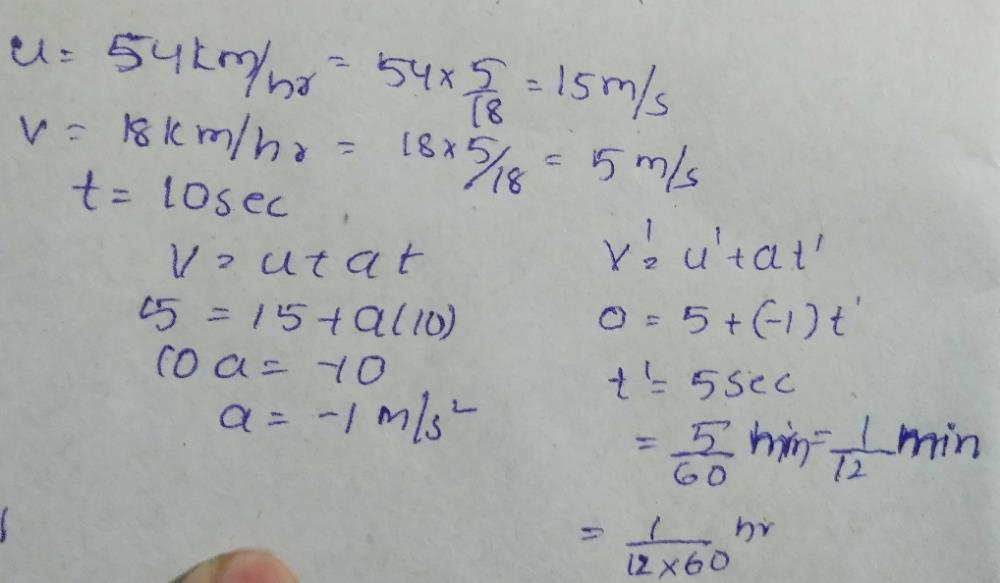 u = 54 km/hr = 54 × 5/18 = 15 m/s
v = 18 km/hr = 18 × 5/18 = 5 m/s
t = 10 sec
v = u + at
5 = 15 + a(10)
10 a = -10
a = -1 m/s²
v' = u' + at'
0 = 5 + (-1) t'
t' = 5 sec
= 5/60 min = 1/12 min
= 1/(12 × 60) hr